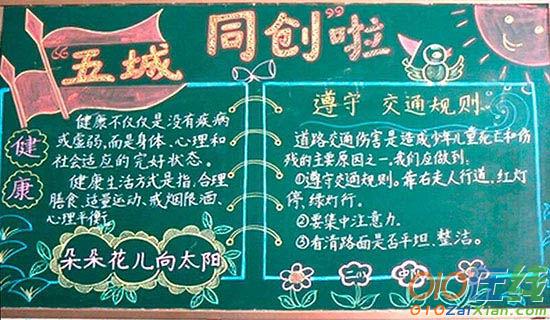 “五城 同创”啦
健康
健康不仅仅是没有疾病
或虚弱,而是身体、心理和
社会适应的完好状态。
健康生活方式是指,合理
膳食、适量运动、戒烟限酒、
心理平衡。
朵朵花儿向太阳
遵守 交通规则。
道路交通伤害是造成少年儿童死亡和伤
残的主要原因之一,我们应做到:
①遵守交通规则。靠右走人行道,红灯
停,绿灯行。
②要集中注意力。
③看清路面是否平坦、整洁。
二(1) 中队
010在线
010zaixian.com